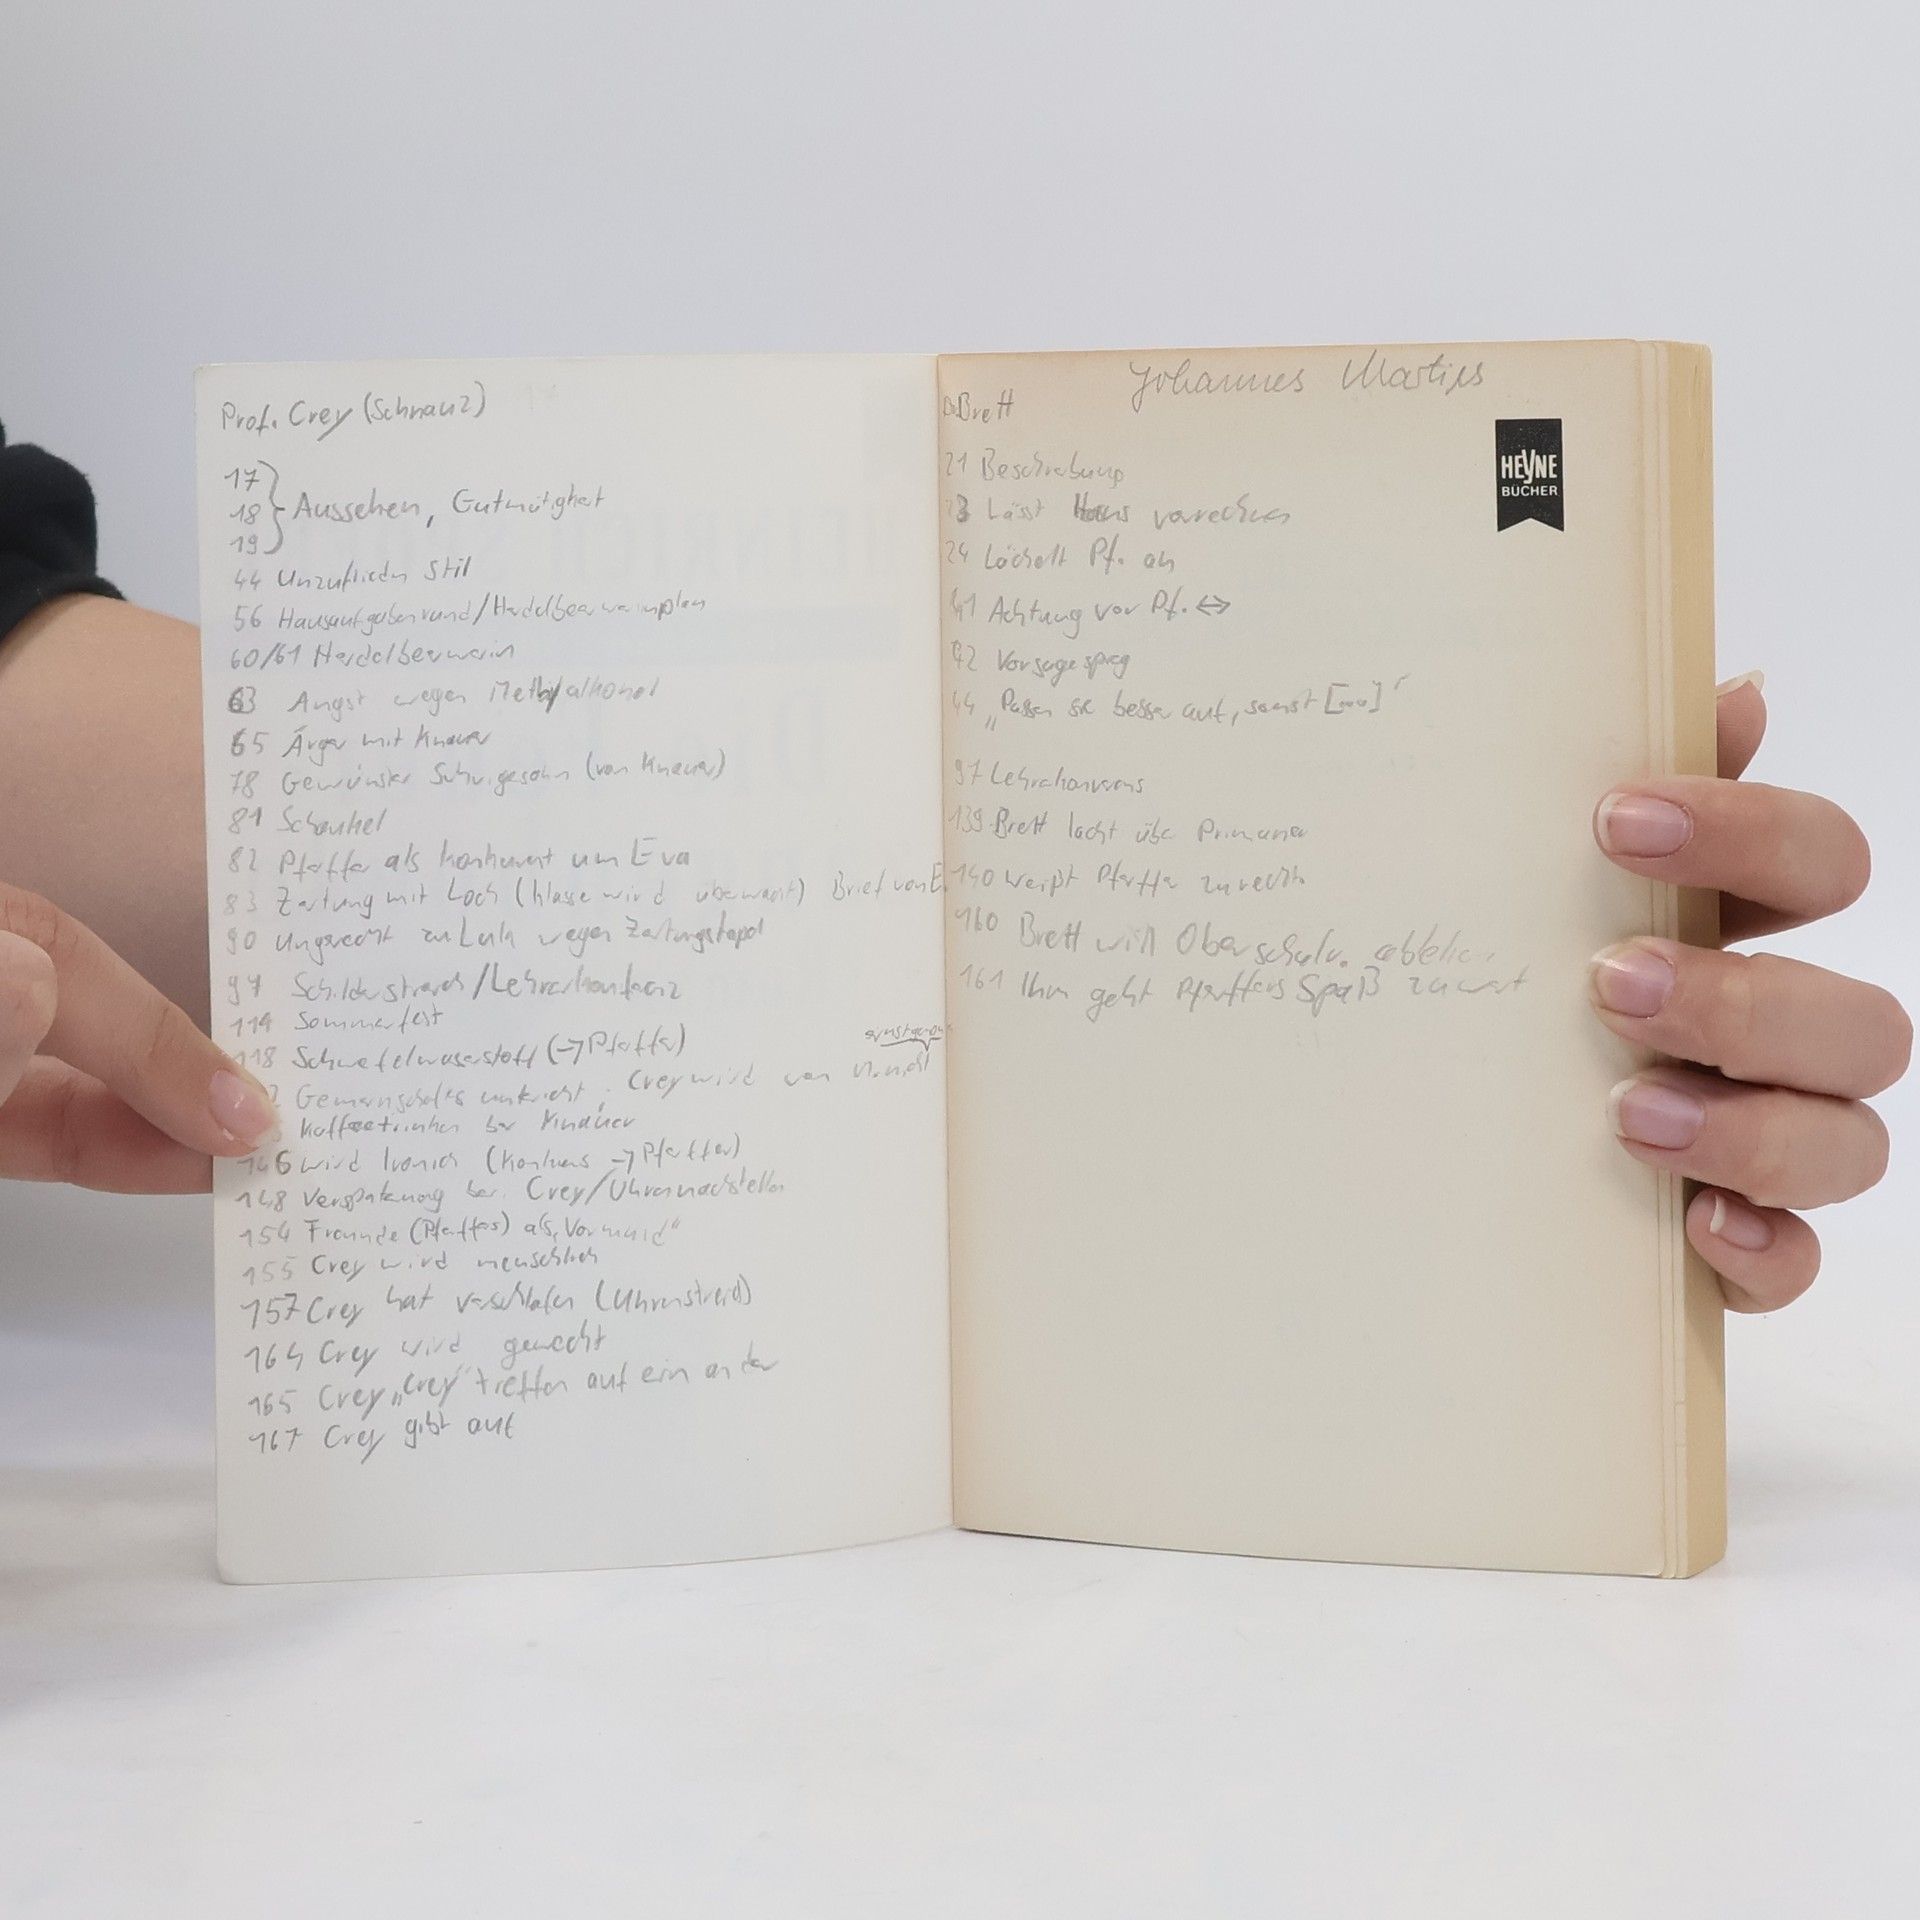 Prof. Crey (Schnauz)
17
18 } Aussehen, Gutmütigkeit
19
44 Unzufrieden Stil
56 Hausaufgaben rund/Heidelbeerweinplan
60/61 Heidelbeerwein
63 Angst wegen Methylalkohol
65 Ärger mit Knauer
78 Gewünster Schwigesohn (von Knauer)
81 Schaukel
82 Pfeiffer als Konkurent um Eva
83 Zeitung mit Loch (Klasse wird überwacht) Brief von E.
90 Ungerecht zu Luk wegen Zeitungstapel
97 Schilderstreich/Lehrerkonferenz
114 Sommerfest
118 Schwefelwasserstoff (→Pfeiffer)
Gemeinschaftsunterricht; Crey wird von nicht
Kaffeetrinken bei Knauer
146 wird Ironich (Konkurs → Pfeiffer)
148 Verspätung bei Crey/Uhrennachstellen
154 Freunde (Pfeiffers) als „Vormund“
155 Crey wird menschlich
157 Crey hat verschlafen (Uhrenstreich)
164 Crey wird geweckt
165 Crey „Crey“ treffen auf ein an der
167 Crey gibt auf
Johannes
Brett
HEYNE
BÜCHER
21 Beschreibung
23 Lässt Hans vorrechnen
24 Lächelt Pf. an
41 Achtung vor Pf. ⇔
42 Vorsage
44 „Passen sie besser auf, sonst [...]“
97 Lehrerkonferens
139 Brett lacht über Primaner
140 weißt Pfeiffer zurecht
160 Brett will Oberschulr.
161 Ihm geht Pfeiffers Spaß zu weit